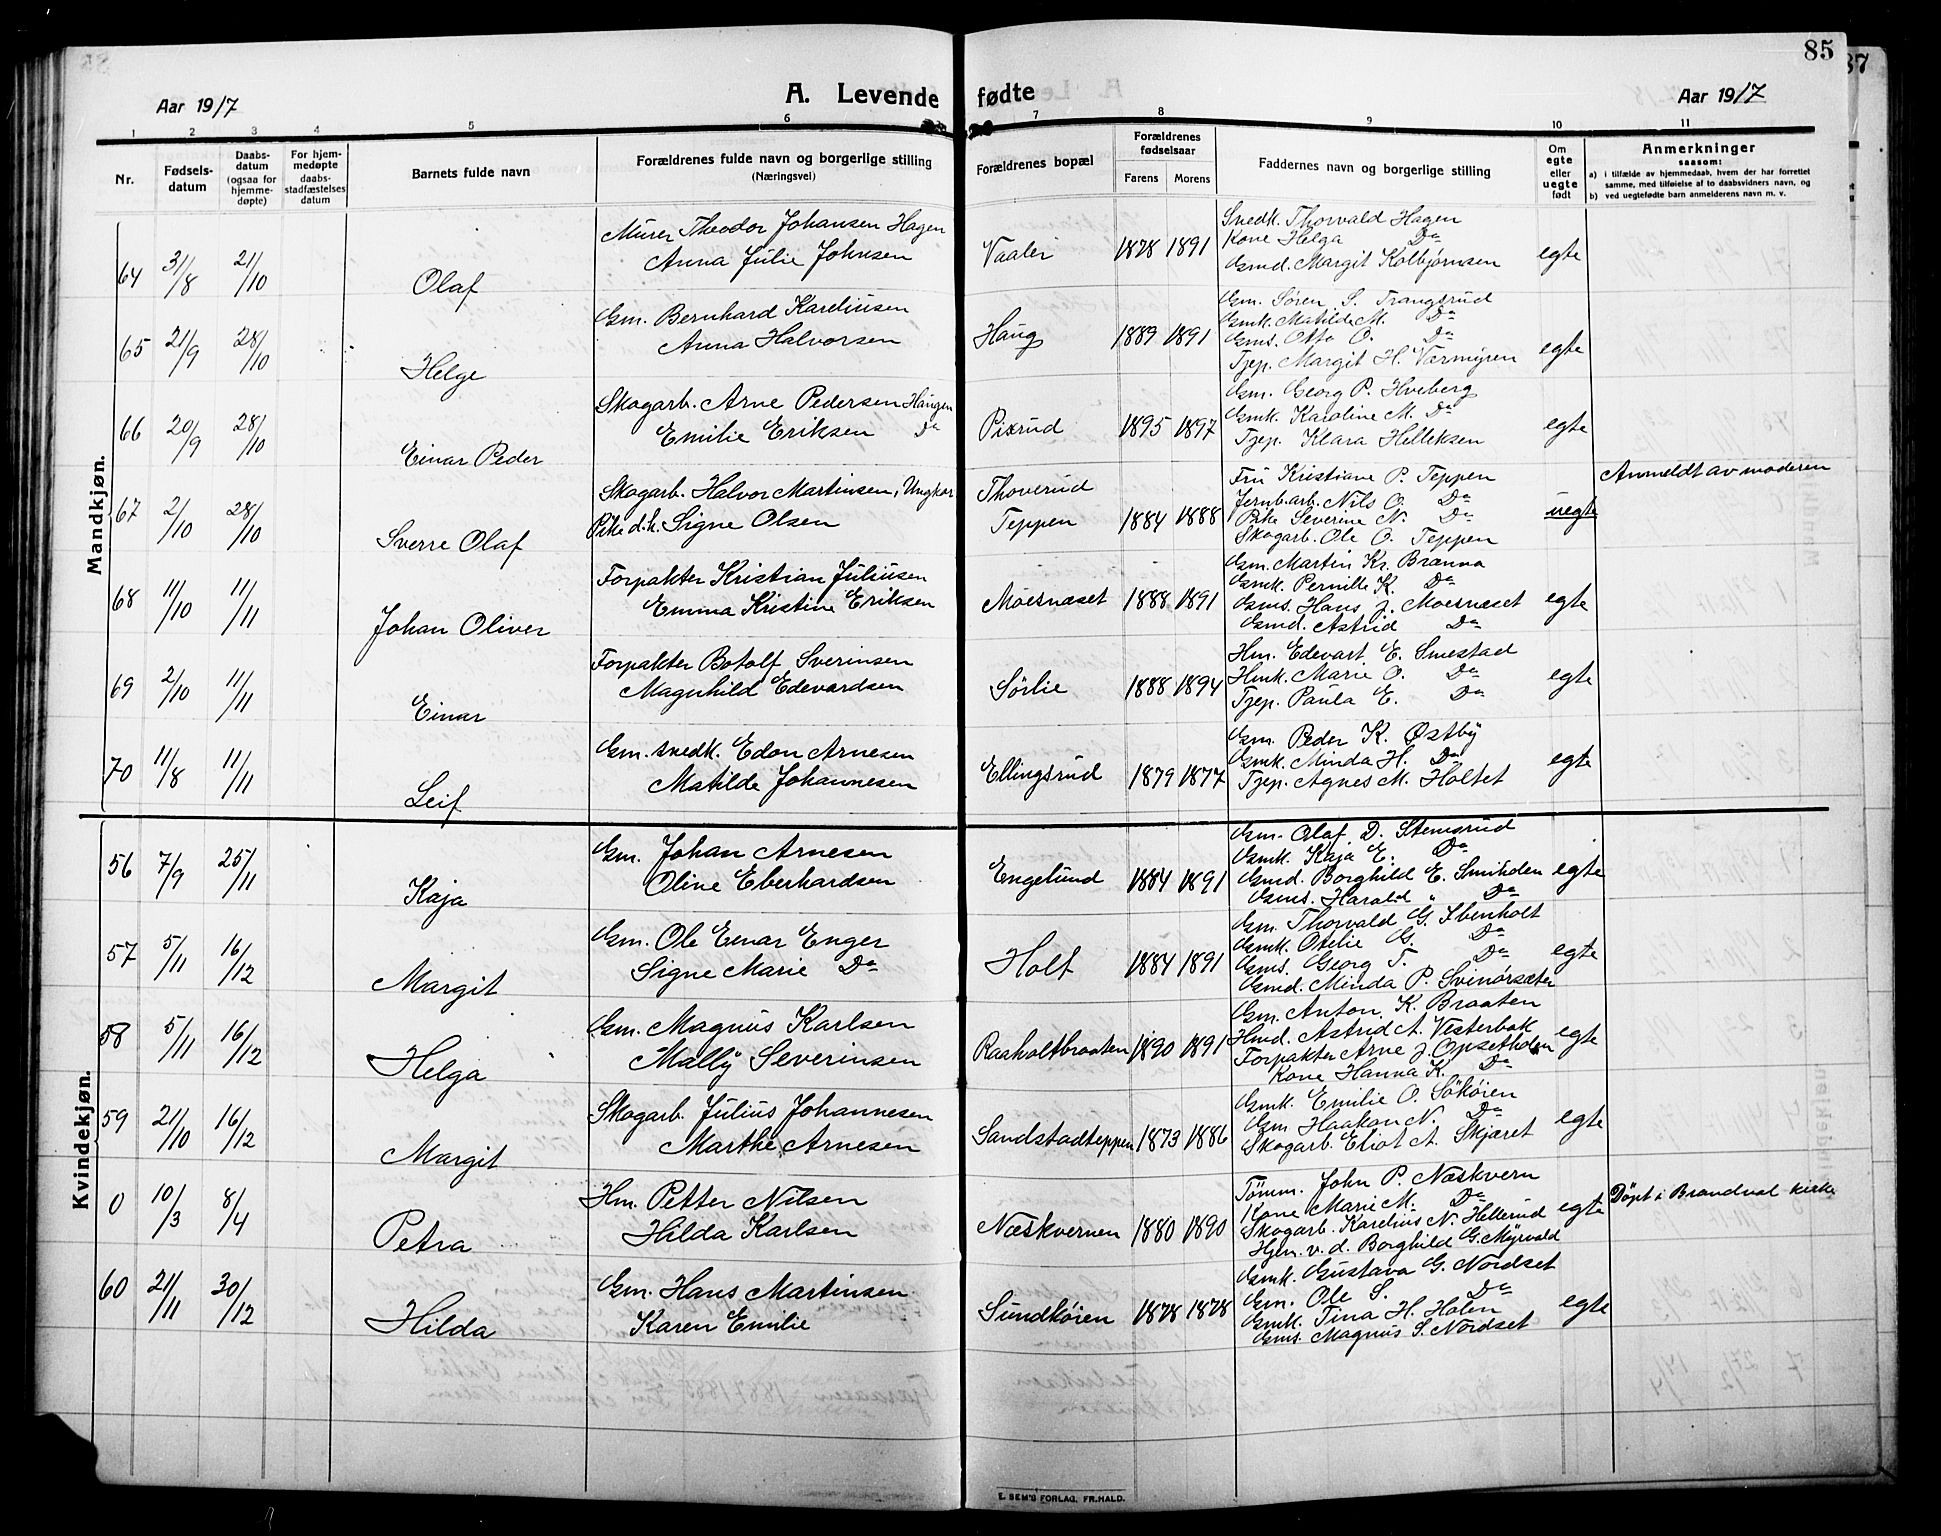 85
37
Aar 1917
A. Levende fødte
Aar 1917
1 2 3 4 5 6 7 8 9 10 11
Nr.
Fødsels-
datum
Daabs-
datum
(ogsaa for
hjemme-
døpte)
For hjem-
medøpte
daabs-
stadfæstelses
datum
Barnets fulde navn
Forældrenes fulde navn og borgerlige stilling
(Næringsvei)
Forældrenes bopæl
Forældrenes
fødselsaar
Farens Morens
Faddernes navn og borgerlige stilling
Om
egte
eller
uegte
født
Anmerkninger
saasom:
a) i tilfælde av hjemmedaab, hvem der har forrettet
samme, med tilføielse af to daabsvidners navn, og
b) ved uegtefødte barn anmelderens navn m. v.
Mandkjøn.
64 31/8 21/10 Olaf
Murer Theodor Johansen Hagen
Anna Julie Johnsen
Vaaler 1878 1891
Snedk. Thorvald Hagen
Kone Helga Do
Gmd. Margit Kolbjørnsen
egte
65 21/9 28/10 Helge
Gm. Bernhard Kareliusen
Anna Halvorsen
Haug 1889 1891
Gm. Søren S. Trangsrud
Gmk. Matilde M. Do
Gms. Otto O. Do
Tjep. Margit H. Værmyren
egte
66 20/9 28/10 Einar Peder
Skogarb. Arne Pedersen Haugen
Emilie Eriksen Do
Pixrud 1895 1897
Gm. Georg P. Hveberg
Gmk. Karoline M. Do
Tjep. Klara Helleksen
egte
67 2/10 28/10 Sverre Olaf
Skogarb. Halvor Martinsen, Ungkar
Pike d.h. Signe Olsen
Thoverud
Teppen 1884 1888
Fru Kristiane P. Teppen
Jernb.arb. Nils O. Do
Pike Severine N. Do
Skogarb. Ole O. Teppen
uegte
Anmeldt av moderen
68 11/10 11/11 Johan Oliver
Forpakter Kristian Juliusen
Emma Kristine Eriksen
Moesnæset 1888 1891
Gm. Martin Kr. Brænna
Gmk. Pernille K. Do
Gms. Hans J. Moesnæset
Gmd. Astrid Do
egte
69 2/10 11/11 Einar
Forpakter Botolf Sverinsen
Magnhild Edevardsen
Sørlie 1888 1894
Hm. Edevart E. Smestad
Hmk. Marie O. Do
Tjep. Paula E. Do
egte
70 11/8 11/11 Leif
Gm. snedk. Edon Arnesen
Matilde Johannesen
Ellingsrud 1879 1877
Gm. Peder K. Østby
Gmk. Minda H. Do
Tjep. Agnes M. Holtet
egte
Kvindekjøn.
56 7/9 25/11 Kaja
Gm. Johan Arnesen
Oline Eberhardsen
Engelund 1884 1891
Gm. Olaf D. Stemsrud
Gmk. Kaja E. Do
Gmd. Borghild E. Smihden
Gms. Harald " Do
egte
57 5/11 16/12 Margit
Gm. Ole Eenar Enger
Signe Marie Do
Holt 1884 1891
Gm. Thorvald G. Ibenholt
Gmk. Otelie G. Do
Gms. Georg T. Do
Gmd. Minda P. Svinørsæter
egte
58 5/11 16/12 Helga
Gm. Magnus Karlsen
Mally Severinsen
Raaholtbraaten 1890 1891
Gm. Anton K. Braaten
Hmd. Astrid A. Vesterbak
Forpakter Arne J. Opsetholen
Kone Hanna K. Do
egte
59 21/10 16/12 Margit
Skogarb. Julius Johannesen
Marthe Arnesen
Sandstadteppen 1873 1886
Gmk. Emilie O. Søkøien
Gm Haakon N. Do
Skogarb. Eliot A. Skjæret
egte
0 10/3 8/4 Petra
Hm. Petter Nilsen
Hilda Karlsen
Næskvernen 1880 1890
Tømm. John P. Næskvern
Kone Marie M. Do
Skogarb. Karelius N. Hellerud
Hjem. v. d. Borghild G. Myrvald
egte
Døpt i Brandval kirke
60 21/11 30/12 Hilda
Gm. Hans Martinsen
Karen Emilie
Sundkøien 1878 1878
Gmk. Gustava G. Nordset
Gm. Ole S. Do
Gmk. Tina H. Holen
Gms. Magnus S. Nordset
egte
E. SEM'S FORLAG, FR.HALD.